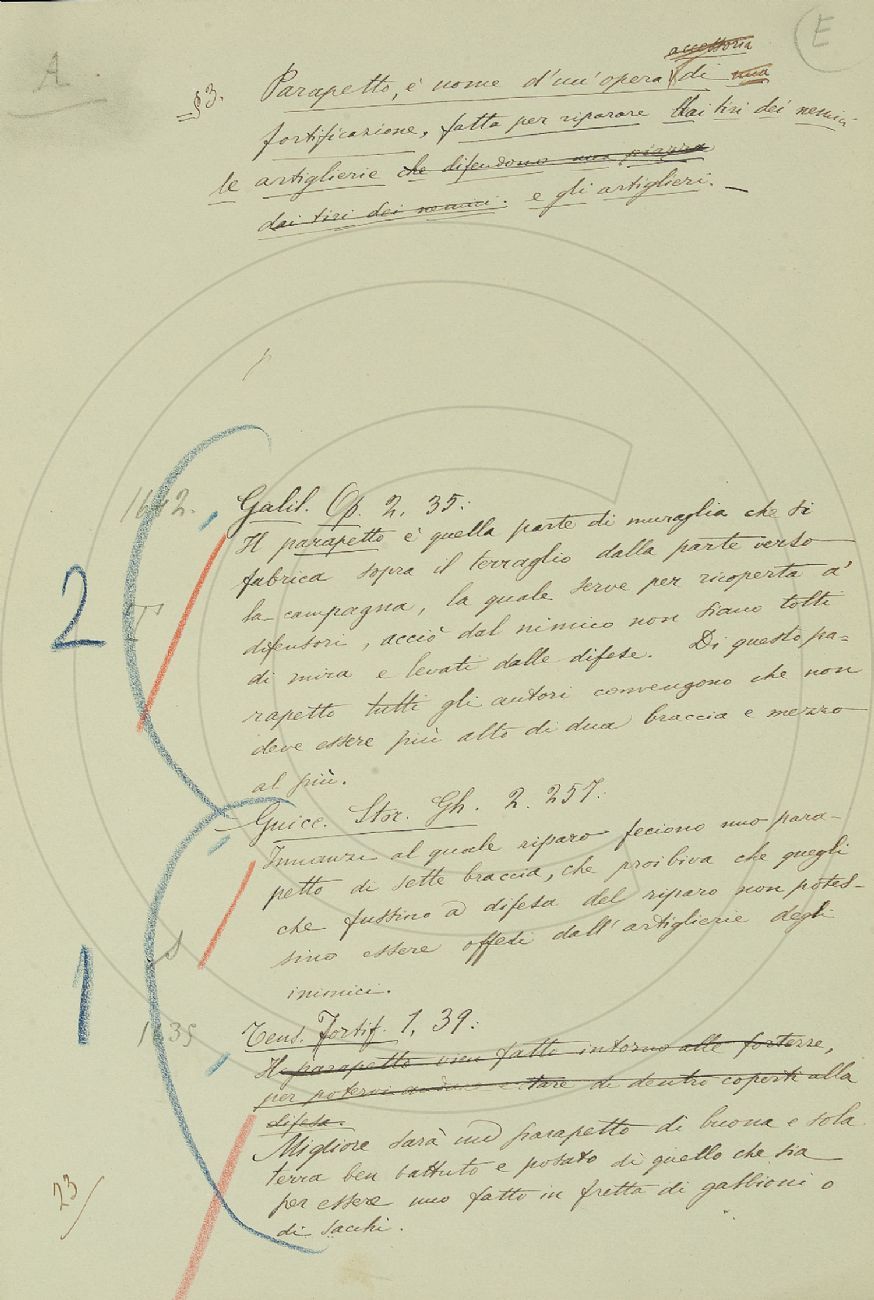 E
A
accessoria
§ 3. Parapetto, è nome d'un'opera di una
fortificazione, fatta per riparare dai tiri dei nemici
le artiglierie che difendono una piazza
dai tiri dei nemici. e gli artiglieri. —
Galil. Op. 2, 35:
Il parapetto è quella parte di muraglia che si
fabrica sopra il terraglio dalla parte verso
la campagna, la quale serve per ricoperta a'
difensori, acciò dal nimico non siano tolti
di mira e levati dalle difese. Di questo pa=
rapetto tutti gli autori convengono che non
deve essere più alto di dua braccia e mezzo
al più.
Guicc. Stor. Gh. 2. 257:
Innanzi al quale riparo feciono uno para-
petto di sette braccia, che proibiva che quegli
che fussino a difesa del riparo non potes-
sino essere offesi dall'artiglierie degli
inimici.
Tens. Fortif. 1, 39:
Il parapetto vien fatto intorno alle fortezze,
per potervi andare e stare di dentro coperti alla
difesa.
Migliore sarà un parapetto di buona e sola
terra ben battuto e posato di quello che sia
per essere uno fatto in fretta di gabbioni o
di sacchi.
2
T
1
S
23